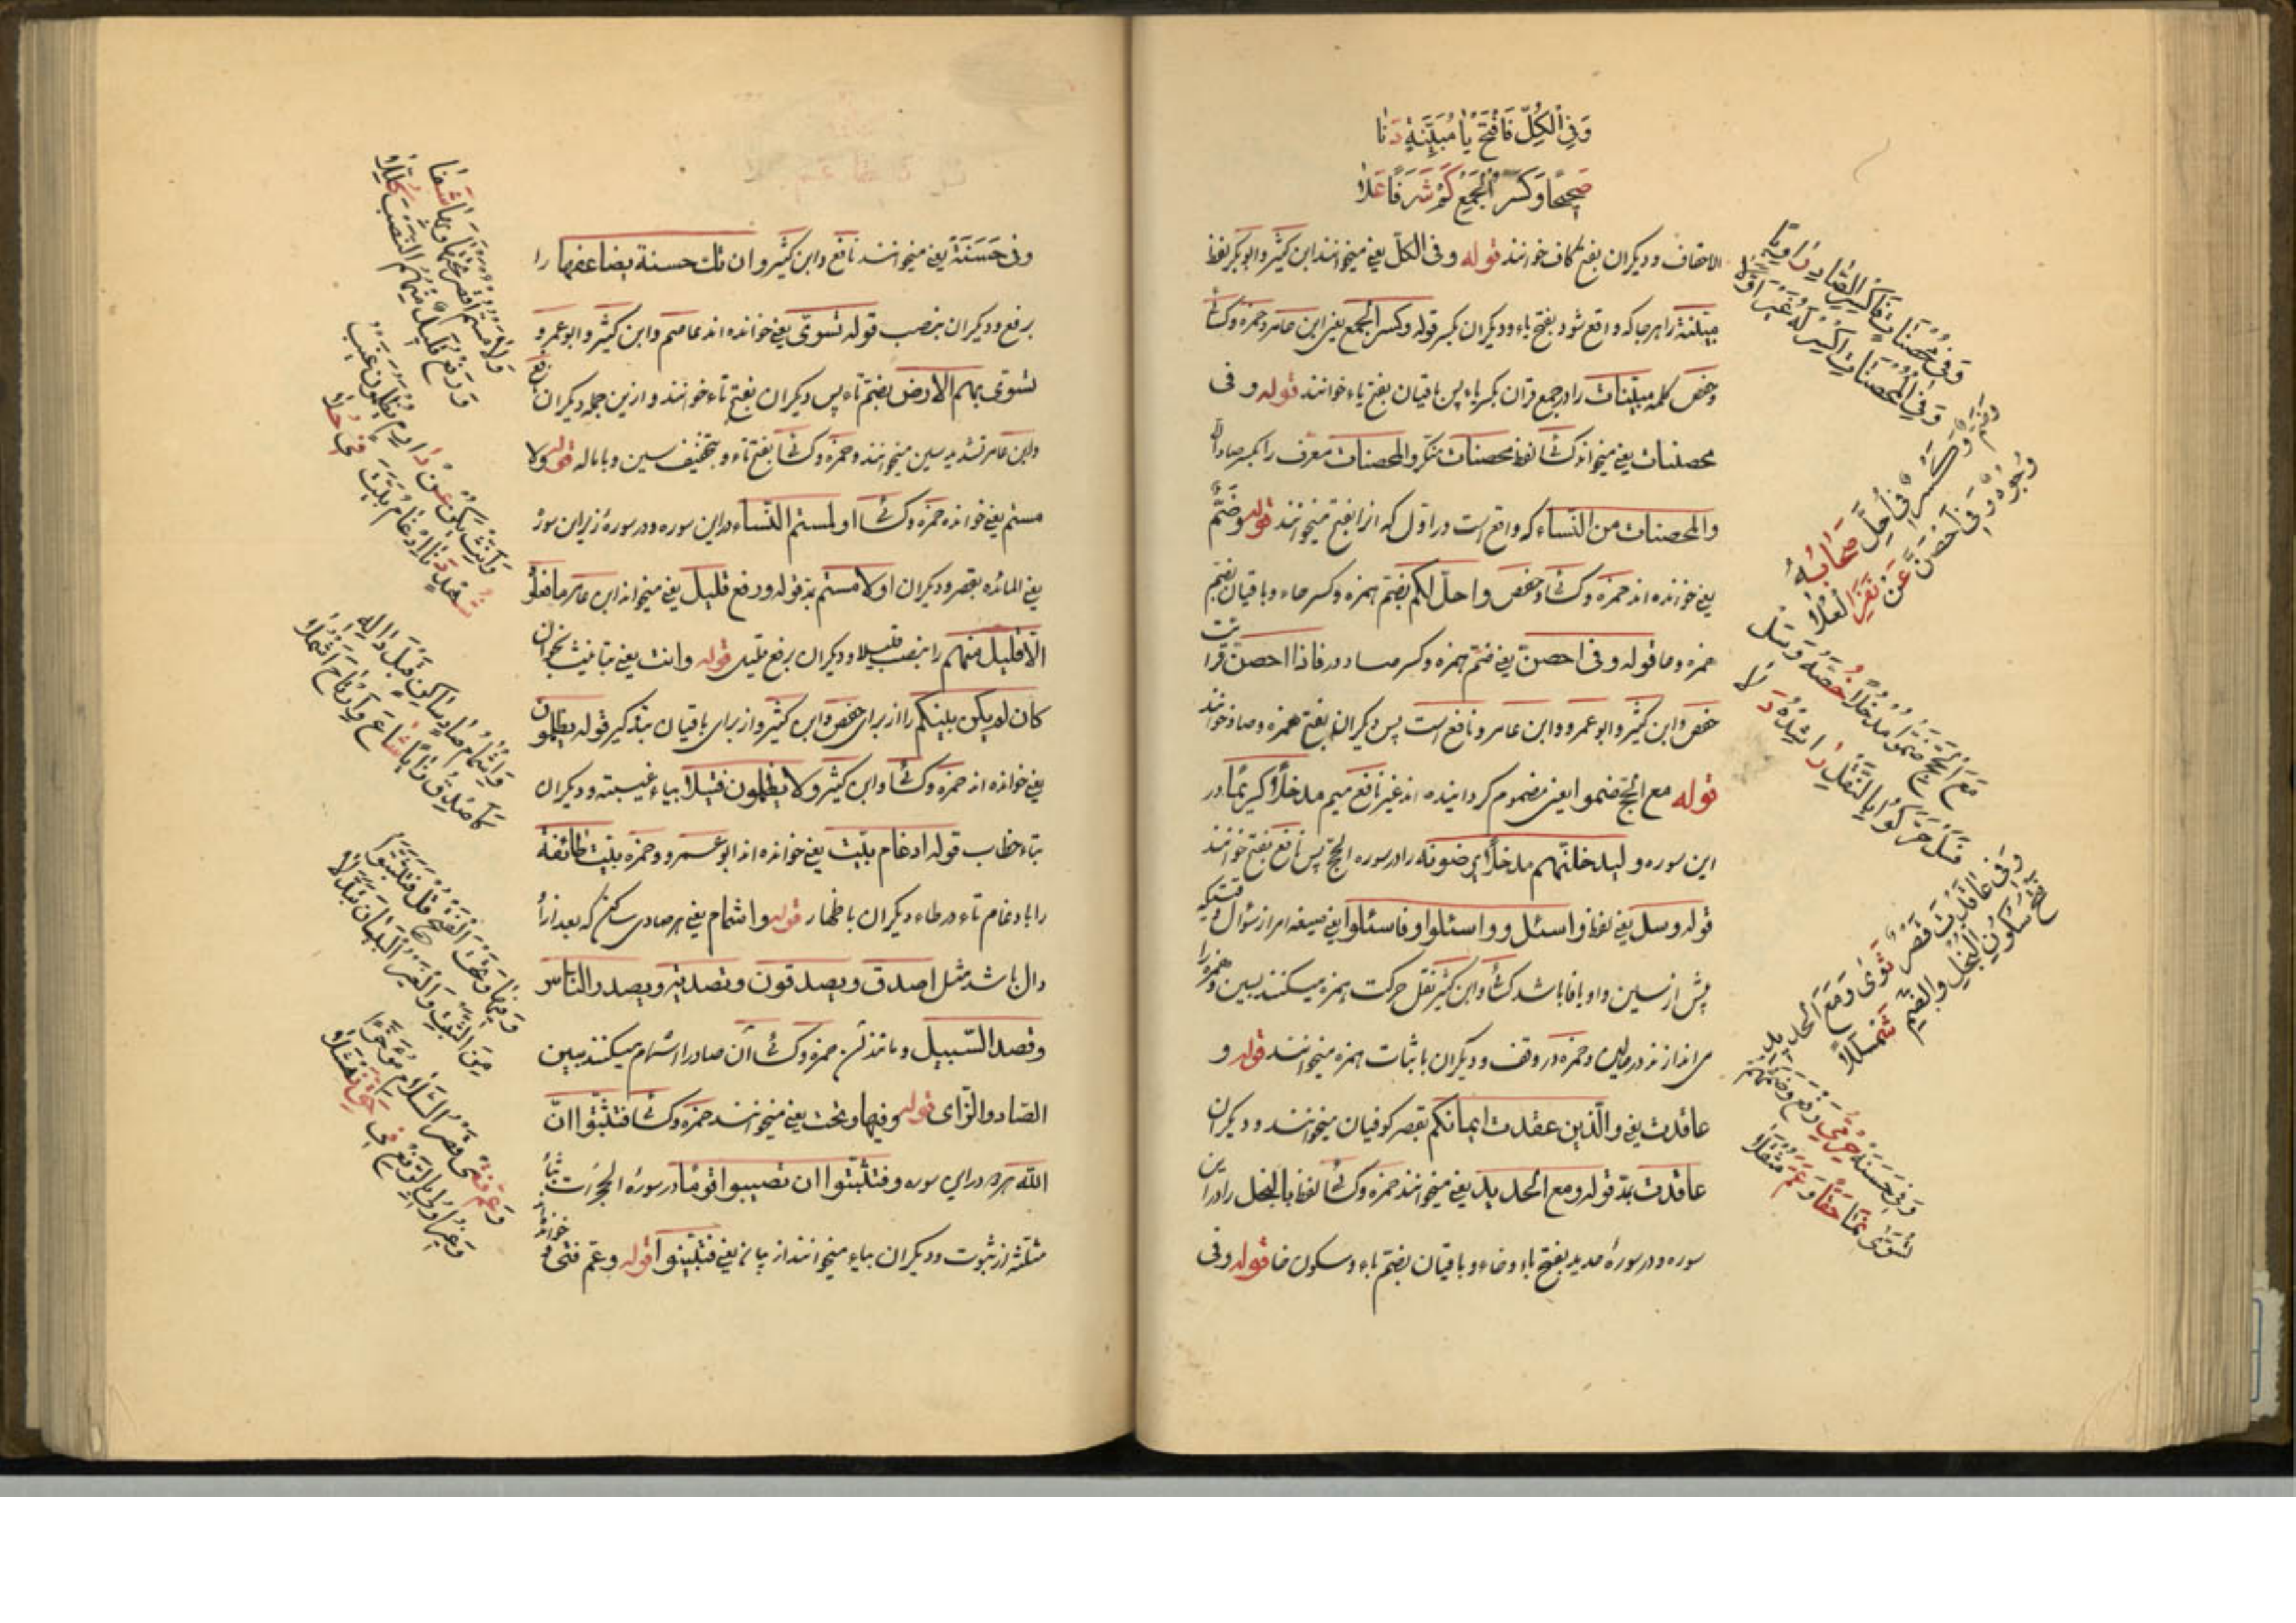 وَفِي الْكُلِّ فَافْتَحْ يَا مُبَيِّنَةٍ دَنَا
صَحِيحًا وَكَسْرُ الْجَمْعِ كَمْ شَرَفًا عَلَا
الاحقاف و دیکران بفتح کاف خوانند قوله وفی الکل یعنی میخوانند ابن کثیر و ابو بکر لفظ
مبیّنة را هر جا که واقع شود بفتح یاء و دیکران بکسر قوله وکسر الجمع یعنی ابن عامر و حمزه و کسائی
و حفص کلمه مبیّنات را در جمع قران بکسر یاء پس باقیان بفتح یاء خوانند قوله و فی
محصنات یعنی میخواند کسائی لفظ محصنات منکر و المحصنات معرف را بکسر صاد الا
والمحصنات من النّساء که واقع است در اوّل که انرا بفتح میخوانند قوله وضمّ
یعنی خوانده اند حمزه و کسائی و حفص واحلّ لکم بضمّ همزه و کسر حاء و باقیان بفتح
همزه و حا قوله وفی احصنّ یعنی ضمّ همزه و کسر صاد در فاذا احصنّ قرائت
حفص و ابن کثیر و ابو عمرو و ابن عامر و نافع است پس دیکران بفتح همزه و صاد خوانند
قوله مع الحجّ ضموا یعنی مضموم کردانیده اند غیر نافع میم مدخلاً کریمًا در
این سوره و لیدخلنّهم مدخلاً یرضونه را در سوره الحجّ پس نافع بفتح خوانند
قوله وسل یعنی لفظ واسئل و واسئلوا و فاسئلوا یعنی صیغه امر از سؤال
پیش از سین واو یا فا باشد کسائی و ابن کثیر نقل حرکت همزه میکنند بسین و همزه را
می اندازند در حالین و حمزه در وقف و دیکران با ثبات همزه میخوانند قوله و
عاقدت یعنی والّذین عقدت ایمانکم بقصر کوفیان میخوانند و دیکران
عاقدت بمدّ قوله ومع الحدید یعنی میخوانند حمزه و کسائی لفظ بالبخل را در این
سوره و در سورهٔ حدید بفتح باء و خاء و باقیان بضمّ باء و سکون خا قوله وفی
وَفِي مُحْصَنَاتٍ فَاكْسِرِ الصَّادَ رَاوِيًا
وَفِي الْمُحْصَنَاتِ اكْسِرْ لَهُ غَيْرَ أَوَّلَا
وَضَمٌّ وَكَسْرٌ فِي أَحَلَّ صَحَابُهُ
وُجُوهٌ وَفِي أَحْصَنَّ عَنْ نَفَرِ الْعُلَا
مَعَ الْحَجِّ ضَمُّوا مُدْخَلًا خُصَّهُ وَسَلْ
فَسَلْ حَرَّكُوا بِالنَّقْلِ رَاشِدُهُ دَلَا
وَفِي عَاقَدَتْ قَصْرٌ ثَوَى وَمَعَ الْحَدِيدِ
فَتْحُ سُكُونِ الْبُخْلِ وَالضَّمِّ شَمْلَلَا
وَفِي حَسَنَهْ حِرْمِيُّ رَفْعٍ وَضَمُّهُمْ
تُسَوَّى نَمَا حَقًّا وَعَمَّ مُثَقَّلَا
وفی حَسَنَةٌ یعنی میخوانند نافع و ابن کثیر و ان تك حسنة یضاعفها را
برفع و دیکران بنصب قوله تسوّی یعنی خوانده اند عاصم و ابن کثیر و ابو عمرو
تسوّی بهم الارض بضمّ تاء پس دیکران بفتح تاء خوانند و ازین جمله دیکران نافع
و ابن عامر تشدید سین میخوانند و حمزه و کسائی بفتح تاء و بتخفیف سین و با ماله قوله ولا
مستم یعنی خوانده حمزه و کسائی او لمستم النّساء در این سوره و در سورهٔ زیر این سوره
یعنی المائده بقصر و دیکران او لامستم بمدّ قوله ورفع قلیل یعنی میخواند ابن عامر ما فعلوه
الّا قلیل منهم را بنصب قلیلا و دیکران برفع قلیل قوله وانث یعنی بتانیث بخوان
کان لم یکن بینکم را از برای حفص و ابن کثیر و از برای باقیان بتذکیر قوله یظلمون
یعنی خوانده اند حمزه و کسائی و ابن کثیر ولا یظلمون فتیلاً بیاء غیبته و دیکران
بتاء خطاب قوله ادغام بیّت یعنی خوانده اند ابو عمرو و حمزه بیّت طائفة
را بادغام تاء در طاء دیکران با ظهار قوله واشمام یعنی هر صادی ساکن که بعد ازآ
دال باشد مثل اصدق ویصدقون وتصدیة ویصدر النّاس
وقصد السّبیل و مانند آن حمزه و کسائی آن صاد را اشمام میکنند ببین
الصّاد والزّای قوله وفیها وتحت یعنی میخوانند حمزه و کسائی فتثبّتوا انّ
الله هر دو در این سوره و فتثبّتوا ان تصیبوا قومًا در سورهٔ الحجرات بثاء
مثلّثه از ثبوت و دیکران بیاء میخوانند از بیان یعنی فتبیّنوا قوله وعمّ فتی
وَلَامَسْتُمُ اقْصُرْ تَحْتَهَا وَبِهَا شَفَا
وَرَفْعُ قَلِيلٌ مِنْهُمُ النَّصْبَ كُلِّلَا
وَأَنِّثْ يَكُنْ عَنْ دَارِمٍ يُظْلَمُونَ غَيْبُ
شُهْدٍ دَنَا إِدْغَامُ بَيَّتَ فِي حُلَا
وَإِشْمَامُ صَادٍ سَاكِنٍ قَبْلَ دَالِهِ
كَأَصْدَقُ زَايًا شَاعَ وَارْتَاحَ أَشْمُلَا
وَفِيهَا وَتَحْتَ الْفَتْحِ قُلْ فَتَثَبَّتُوا
مِنَ الثَّبْتِ وَالْغَيْرُ الْبَيَانَ تَبَدَّلَا
وَعَمَّ فَتًى قَصْرُ السَّلَامَ مُؤَخَّرًا
وَغَيْرُ أُولِي بِالرَّفْعِ فِي حَقِّ نَهْشَلَا